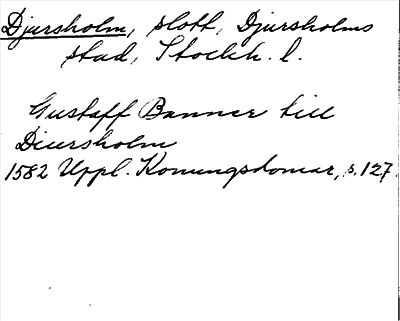 Djursholm, slott, Djursholms
stad, Stockh. l.
Gustaff Banner till
Diursholm
1582 Uppl. Konungsdomar, s. 127.